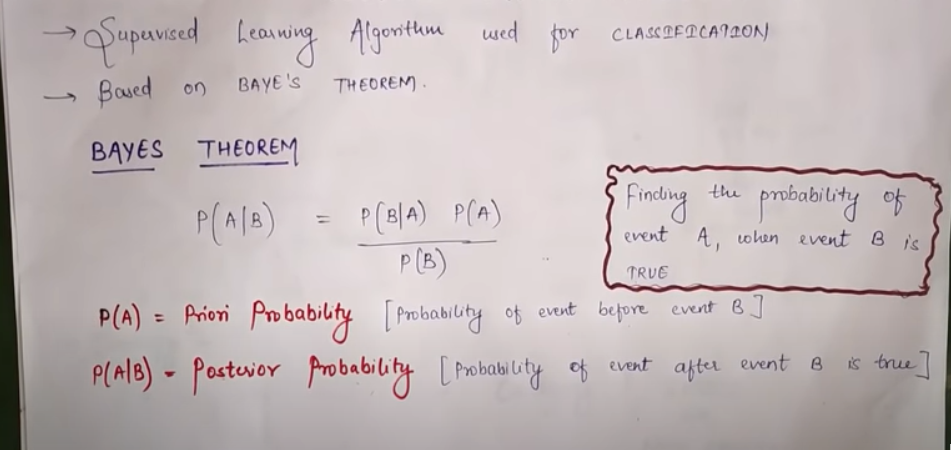 → Supervised Learning Algorithm used for CLASSIFICATION
→ Based on BAYE'S THEOREM.
BAYES THEOREM
P(A|B) = P(B|A) P(A)
P(B)
Finding the probability of
event A, when event B is
TRUE
P(A) = Priori Probability [Probability of event before event B]
P(A|B) - Posterior Probability [Probability of event after event B is true]